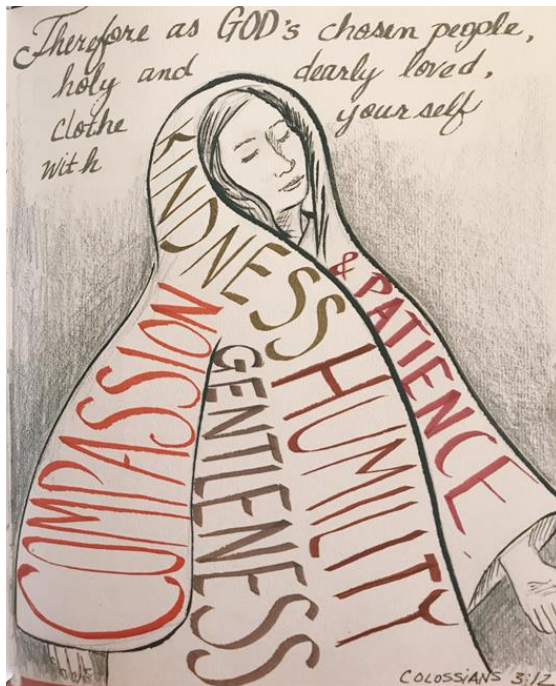 Therefore as GOD's chosen people,
holy and dearly loved,
clothe yourself
with
COMPASSION
KINDNESS
GENTLENESS
HUMILITY
& PATIENCE.
COLOSSIANS 3:12